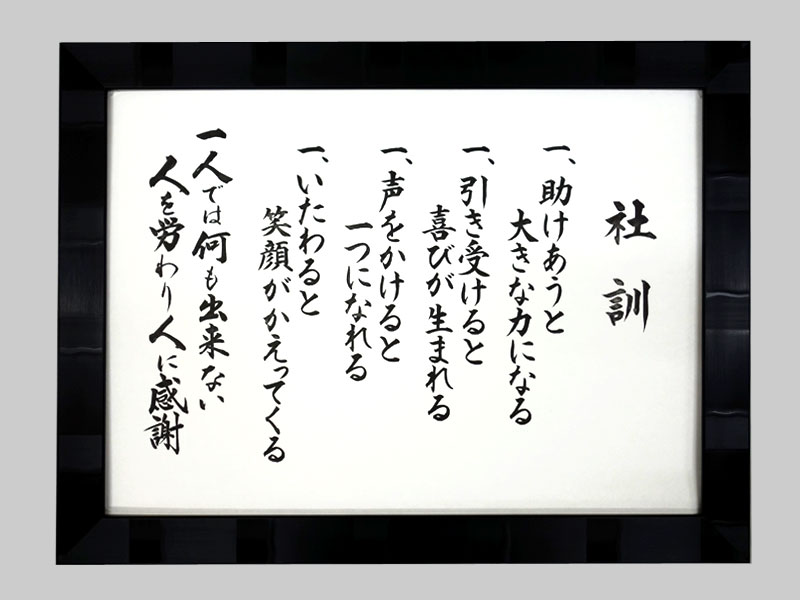 社訓
一、助けあうと
大きな力になる
一、引き受けると
喜びが生まれる
一、声をかけると
一つになれる
一、いたわると
笑顔がかえってくる
一人では何も出来ない
人を労わり人に感謝